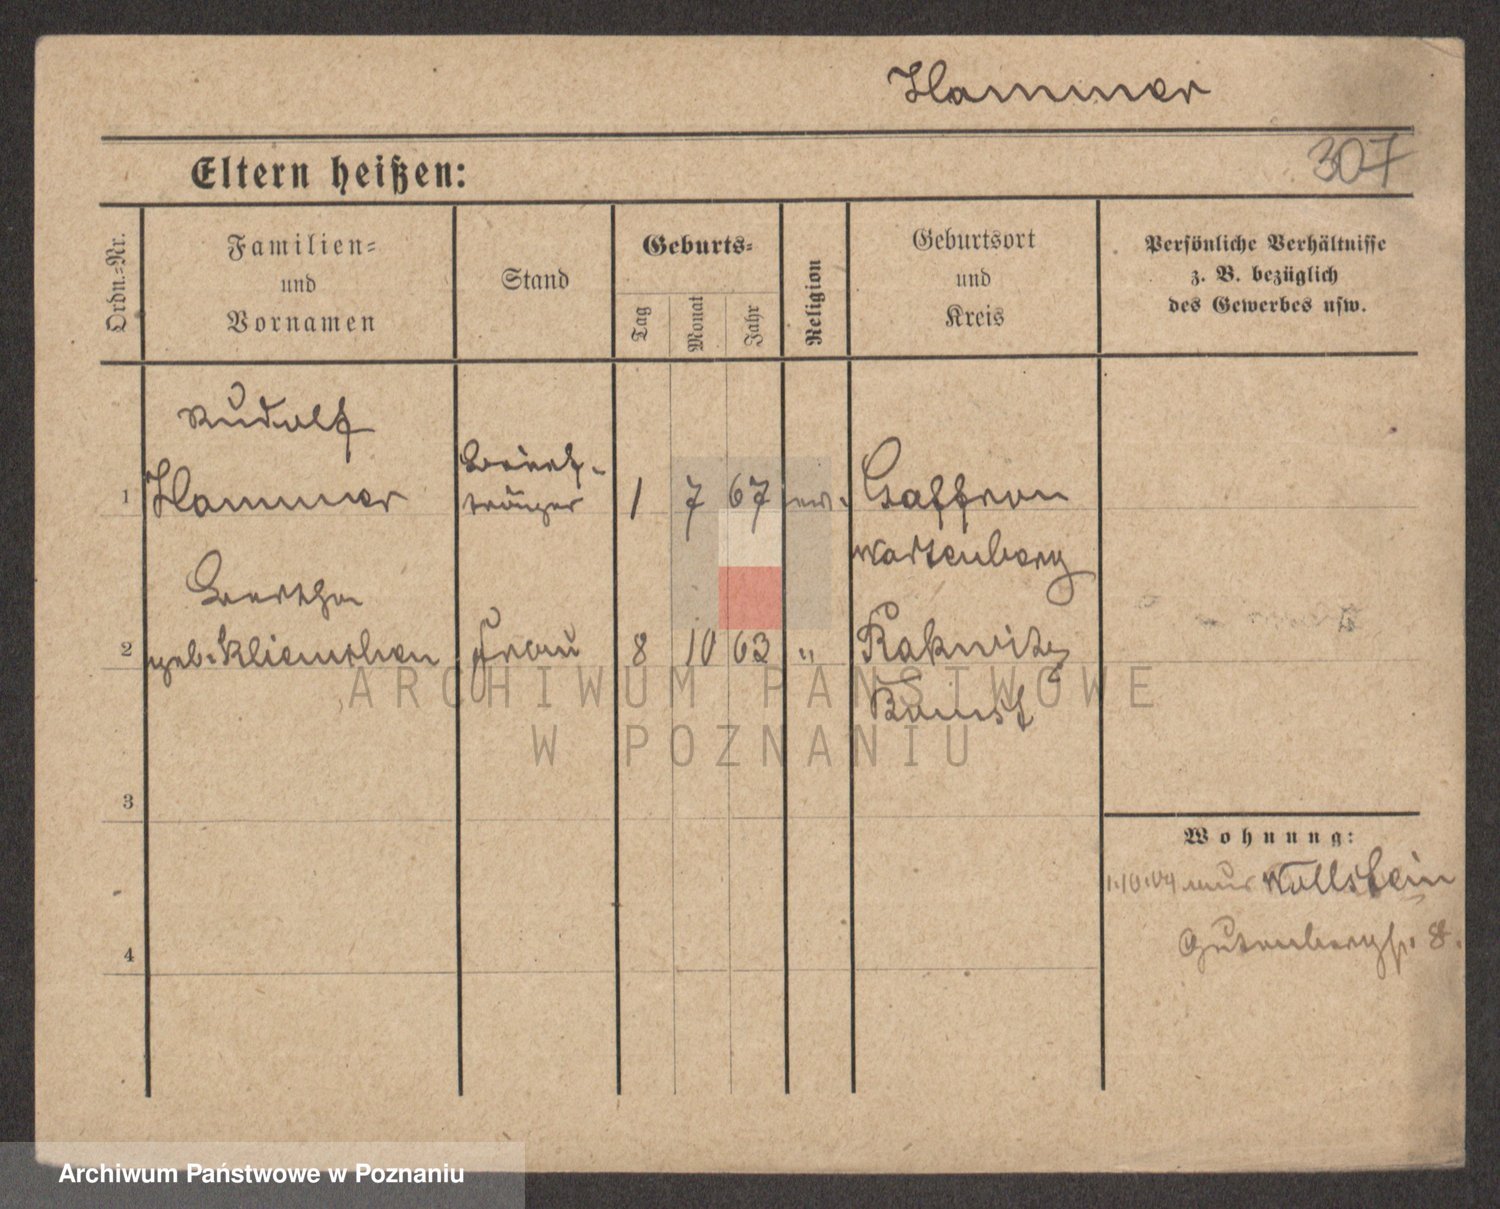 Hammer
Eltern heißen:
307
Ordn.=Nr.
Familien=
und
Vornamen
Stand
Geburts=
Tag
Monat
Jahr
Religion
Geburtsort
und
Kreis
Persönliche Verhältnisse
z. B. bezüglich
des Gewerbes usw.
Rudolf
1 Hammer
Brief-
träger
1 7 67 ev. Gaffron
Wartenberg
Bertha
2 geb. Frau 8 10 63 " Rakwitz
Bomst
3
Wohnung:
1.10.04 aus Wollstein
4
Gutenbergst. 8.
ARCHIWUM PAŃSTWOWE
W POZNANIU
Archiwum Państwowe w Poznaniu